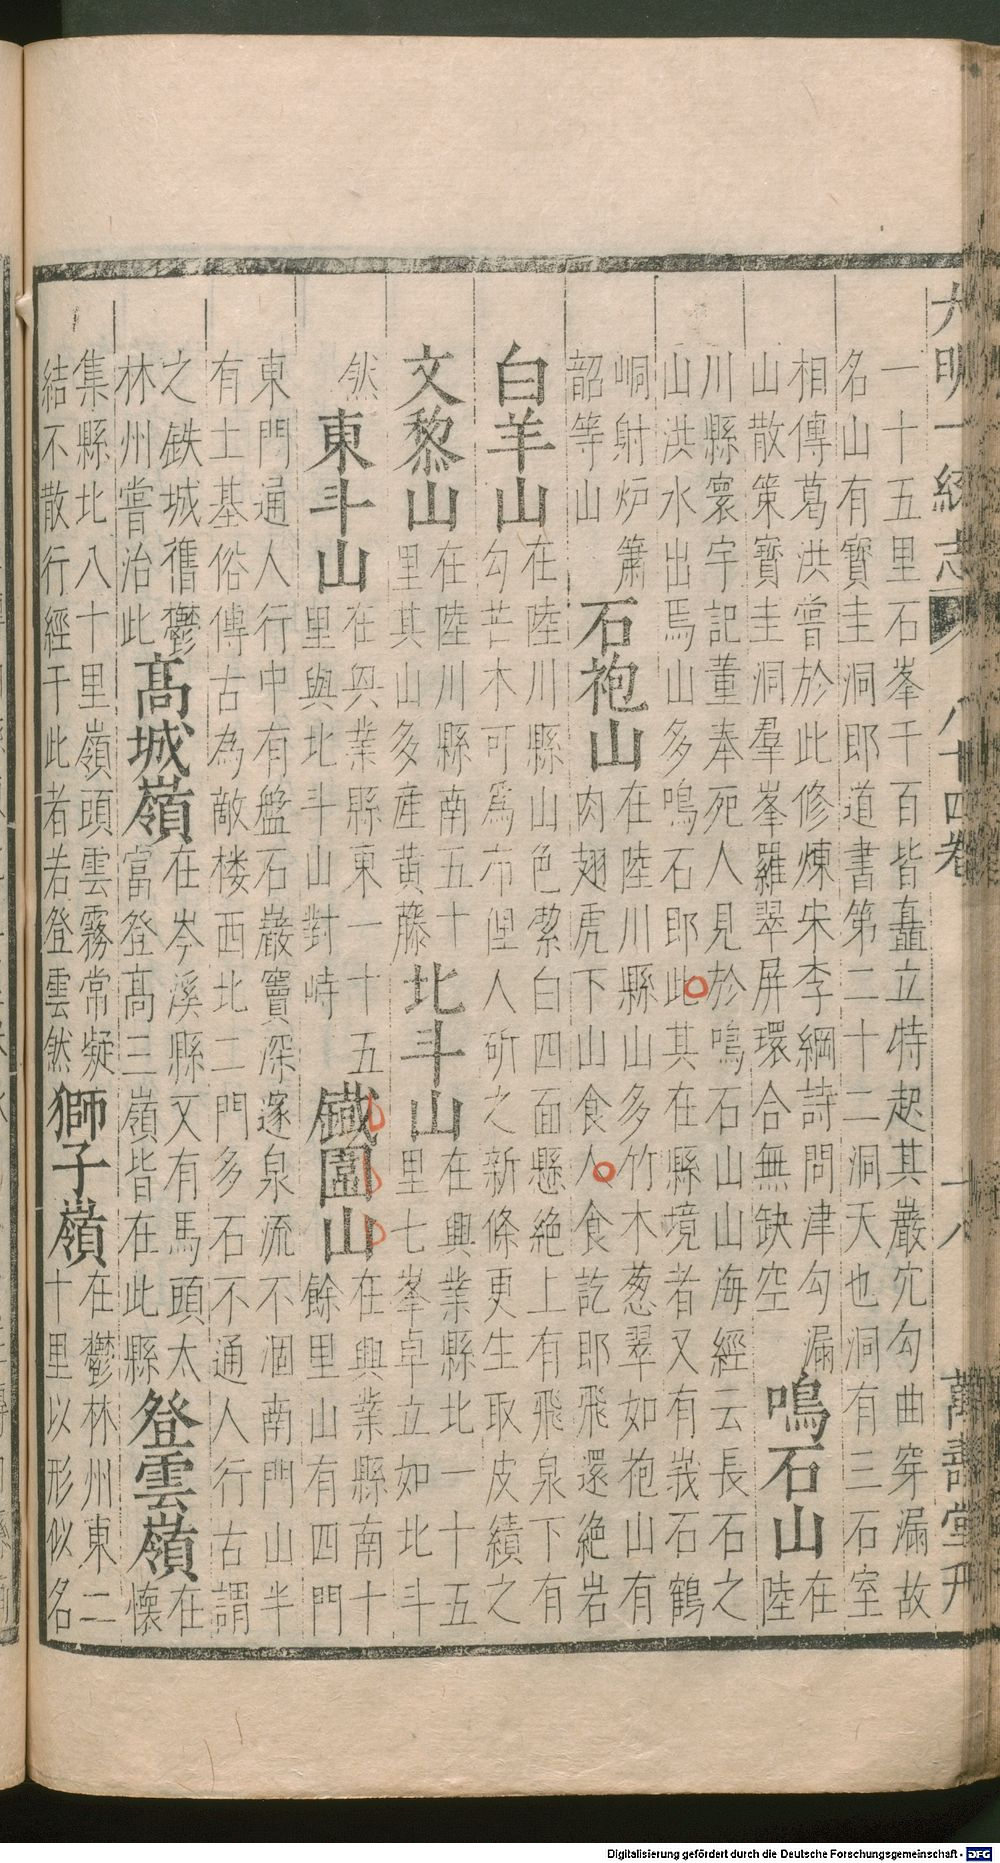 大明一統志 八十四卷 十八 萬壽堂刋
一十五里石峯千百皆矗立特起其巖宂勾曲穿漏故
名山有寶圭洞郎道書第二十二洞天也洞有三石室
相傳葛洪嘗於此修煉宋李綱詩問津勾漏
山散策寶圭洞羣峯羅翠屏環合無缺空
鳴石山
在
陸
川縣寰宇記董奉死人見於鳴石山山海經云長石之
山洪水出焉山多鳴石郎此其在縣境者又有峩石鶴
峒射炉簫
韶等山
石袍山
在陸川縣山多竹木葱翠如袍山有
肉翅虎下山食人食訖郎飛還絶岩
白羊山
在陸川縣山色潔白四面懸絶上有飛泉下有
勾芒木可爲布俚人斫之新條更生取皮績之
文黎山
在陸川縣南五十
里其山多産黄藤
北斗山
在興業縣北一十五
里七峯卓立如北斗
然
東斗山
在興業縣東一十五
里與北斗山對峙
鐵圍山
在興業縣南十
餘里山有四門
東門通人行中有盤石巖竇深邃泉流不涸南門山半
有土基俗傳古為敵楼西北二門多石不通人行古謂
之鉄城舊鬱
林州嘗治此
髙城嶺
在岑溪縣又有馬頭太
富登髙三嶺皆在此縣
登雲嶺
在
懷
集縣北八十里嶺頭雲霧常凝
結不散行經于此者若登雲然
獅子嶺
在鬱林州東二
十里以形似名
Digitalisierung gefördert durch die Deutsche Forschungsgemeinschaft - DFG